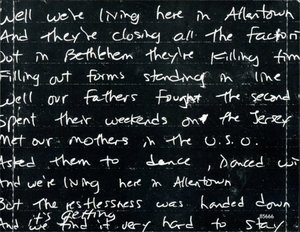 Well we're living here in Allentown
And they're closing all the factori
Out in Bethlehem they're Killing tim
Filling out forms standing in line
Well our fathers fought the second
Spent their weekends on the Jersey
Met our mothers in the U.S.O.
Asked them to dance, Danced wi
And we're living here in Allentown
But the restlessness was handed down
it's getting
And we find it very hard to stay
85666